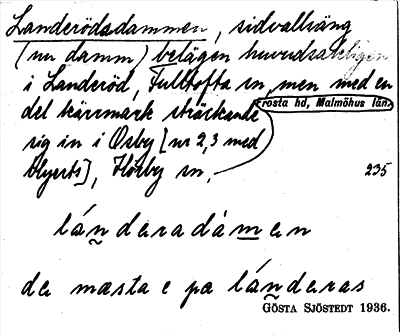 Landerödsdammen, sidvalläng
(nu damm) belägen huvudsakligen
i Landeröd, Fulltofta sn, men med en
del kärrmark sträckande
Frosta hd, Malmöhus län.
sig in i Osby [nr 2,3 med
blyerts], Hörby sn.
235
lánderadámen
de mæsta e pa lánderas
GÖSTA SJÖSTEDT 1936.